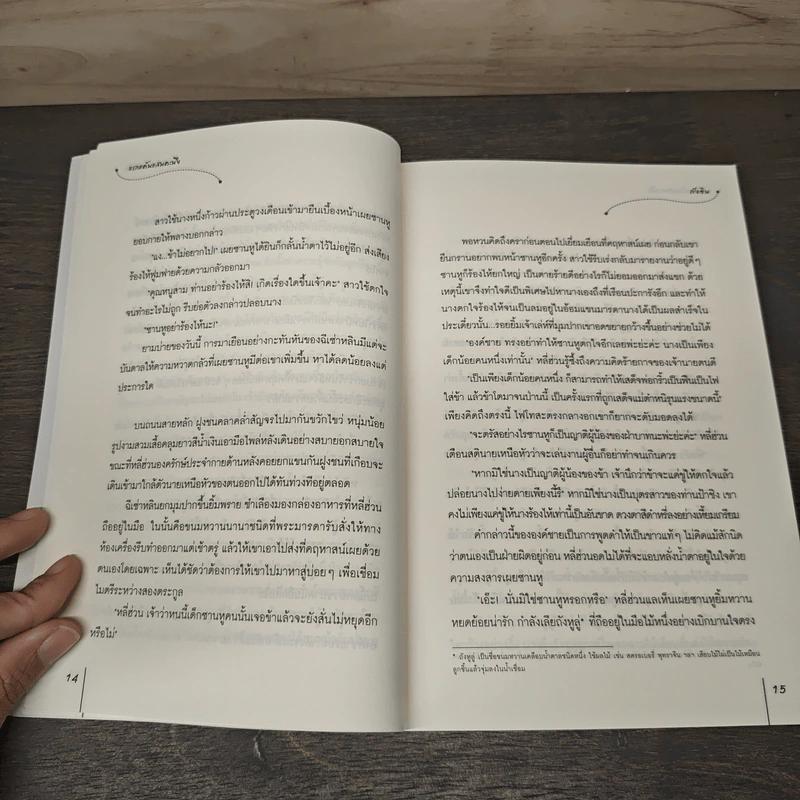 สาวใช้นางหนึ่งก้าวผ่านประตูวงเดือนเข้ามายืนเบื้องหน้าเผยซานหู
ยอบกายให้พลางบอกกล่าว
"แง...ข้าไม่อยากไป!" เผยซานหูได้ยินก็กลั้นน้ำตาไว้ไม่อยู่อีก ส่งเสียง
ร้องไห้ฟูมฟายด้วยความกลัวออกมา
"คุณหนูสาม ท่านอย่าร้องไห้สิ! เกิดเรื่องใดขึ้นเจ้าคะ" สาวใช้ตกใจ
จนทำอะไรไม่ถูก รีบย่อตัวลงกล่าวปลอบนาง
"ซานหูอย่าร้องไห้นะ!"
ยามบ่ายของวันนี้ การมาเยือนอย่างกะทันหันของฉีเซ่าหลินมีแต่จะ
บันดาลให้ความหวาดกลัวที่เผยซานหูมีต่อเขาเพิ่มขึ้น หาได้ลดน้อยลงแต่
ประการใด
บนถนนสายหลัก ฝูงชนคลาคล่ำสัญจรไปมากันขวักไขว่ หนุ่มน้อย
รูปงามสวมเสื้อคลุมยาวสีน้ำเงินเอามือไพล่หลังเดินอย่างสบายอกสบายใจ
ขณะที่หลี่ฮ่วนองครักษ์ประจำกายด้านหลังคอยยกแขนกันฝูงชนที่เกือบจะ
เดินเข้ามาใกล้ตัวนายเหนือหัวของตนออกไปได้ทันท่วงทีอยู่ตลอด
ฉีเซ่าหลินยกมุมปากขึ้นยิ้มพราย ชำเลืองมองกล่องอาหารที่หลี่ฮ่วน
ถืออยู่ในมือ ในนั้นคือขนมหวานนานาชนิดที่พระมารดารับสั่งให้ทาง
ห้องเครื่องรีบทำออกมาแต่เช้าตรู่ แล้วให้เขาเอาไปส่งที่คฤหาสน์เผยด้วย
ตนเองโดยเฉพาะ เห็นได้ชัดว่าต้องการให้เขาไปมาหาสู่บ่อยๆ เพื่อเชื่อม
ไมตรีระหว่างสองตระกูล
"หลี่ฮ่วน เจ้าว่าหนนี้เด็กซานหูคนนั้นเจอข้าแล้วจะยังสั่นไม่หยุดอีก
หรือไม่"
14
พอหวนคิดถึงคราก่อนตอนไปเยี่ยมเยือนที่คฤหาสน์เผย ก่อนกลับเขา
ยืนกรานอยากพบหน้าซานหูอีกครั้ง สาวใช้รีบเร่งกลับมารายงานว่าอยู่ดีๆ
ซานหูก็ร้องไห้ยกใหญ่ เป็นตายร้ายดีอย่างไรก็ไม่ยอมออกมาส่งแขก ด้วย
เหตุนี้เขาจึงทำใจดีเป็นพิเศษไปหานางเองถึงที่เรือนปะการังอีก และทำให้
นางตกใจร้องไห้จนเป็นลมอยู่ในอ้อมแขนมารดานางได้เป็นผลสำเร็จใน
ประเดี๋ยวนั้น...รอยยิ้มเจ้าเล่ห์ที่มุมปากเขาอดขยายกว้างขึ้นอย่างช่วยไม่ได้
"องค์ชาย ทรงอย่าทำให้ซานหูตกใจอีกเลยพ่ะย่ะค่ะ นางเป็นเพียง
เด็กน้อยคนหนึ่งเท่านั้น" หลี่ฮ่วนรู้ซึ้งถึงความคิดร้ายกาจของเจ้านายตนดี
"เป็นเพียงเด็กน้อยคนหนึ่ง ก็สามารถทำให้เสด็จพ่อกริ้วเป็นฟืนเป็นไฟ
ใส่ข้า แล้วข้าโตมาจนป่านนี้ เป็นครั้งแรกที่ถูกเสด็จแม่ตำหนิรุนแรงขนาดนี้"
เพียงคิดถึงตรงนี้ ไฟโทสะตรงกลางอกเขาก็ยากจะดับมอดลงได้
"จะตรัสอย่างไรซานหูก็เป็นญาติผู้น้องของฝ่าบาทนะพ่ะย่ะค่ะ" หลี่ฮ่วน
เตือนสตินายเหนือหัวว่าจะเล่นงานผู้อื่นก็อย่าทำจนเกินควร
"หากมิใช่นางเป็นญาติผู้น้องของข้า เจ้านึกว่าข้าจะแค่ขู่ให้ตกใจแล้ว
ปล่อยนางไปง่ายดายเพียงนี้รึ? หากมิใช่นางเป็นบุตรสาวของท่านป้าซิง เขา
คงไม่เพียงแค่ขู่ให้นางร้องไห้เท่านี้เป็นอันขาด ดวงตาสีดำหรี่ลงอย่างเหี้ยมเกรียม
คำกล่าวนี้ขององค์ชายเป็นการพูดดำให้เป็นขาวแท้ๆ ไม่คิดแม้สักนิด
ว่าตนเองเป็นฝ่ายผิดอยู่ก่อน หลี่ฮ่วนอดไม่ได้ที่จะแอบหลั่งน้ำตาอยู่ในใจด้วย
ความสงสารเผยซานหู
"เอ๊ะ! นั่นมิใช่ซานหูหรอกหรือ" หลี่ฮ่วนแลเห็นเผยซานหูยิ้มหวาน
หยดย้อยน่ารัก กำลังเลียถังหูลู่* ที่ถืออยู่ในมือไม้หนึ่งอย่างเบิกบานใจตรง
* ถังหูลู่ เป็นชื่อขนมหวานเคลือบน้ำตาลชนิดหนึ่ง ใช้ผลไม้ เช่น สตรอเบอรี่ พุทราจีน ฯลฯ เสียบไม้ไผ่เป็นไม้เหมือน
ลูกชิ้นแล้วจุ่มลงในน้ำเชื่อม
15